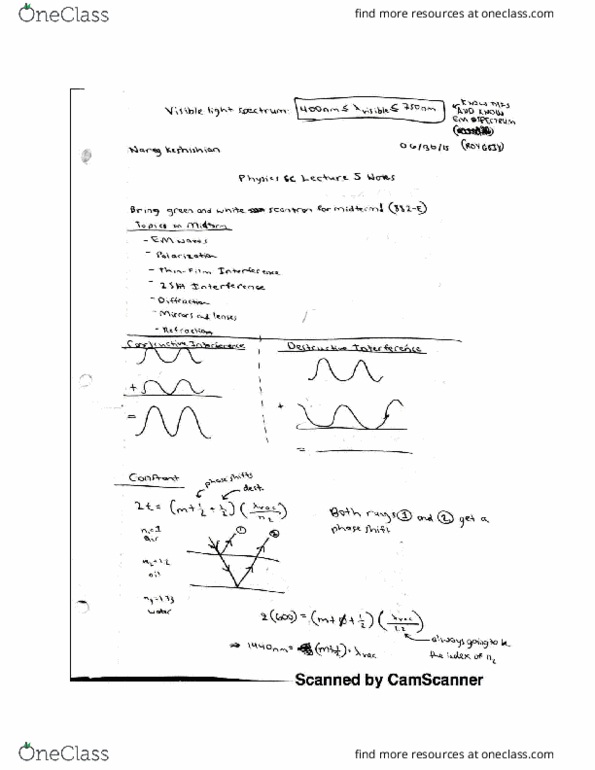 OneClass
find more resources at oneclass.com
Visible light spectrum: 400nm ≤ λvisible ≤ 750nm
KNOW THIS
AND KNOW
EM SPECTRUM
(ROYGBIV)
Nareg Keshishian
06/30/15
Physics 6C Lecture 5 Notes
Bring green and white scantron for midterm! (882-E)
Topics on Midterm
- EM waves
- Polarization
- Thin-Film Interference
- 2 Slit Interference
- Diffraction
- Mirrors and lenses
- Refraction
Constructive Interference
Destructive Interference
+
=
+
=
Constant
phase shifts
dest.
2t = (m + 1/2 + 1/2) (λvac/n2)
n1=1
air
n2=1.2
oil
n3=1.33
water
1
2
Both rays ① and ② get a
phase shift
2(600) = (m + 0 + 1/2) (λvac/1.2)
always going to be
the index of n2
⇒ 1440nm = (m+1/2) · λvac
Scanned by CamScanner
OneClass
find more resources at oneclass.com